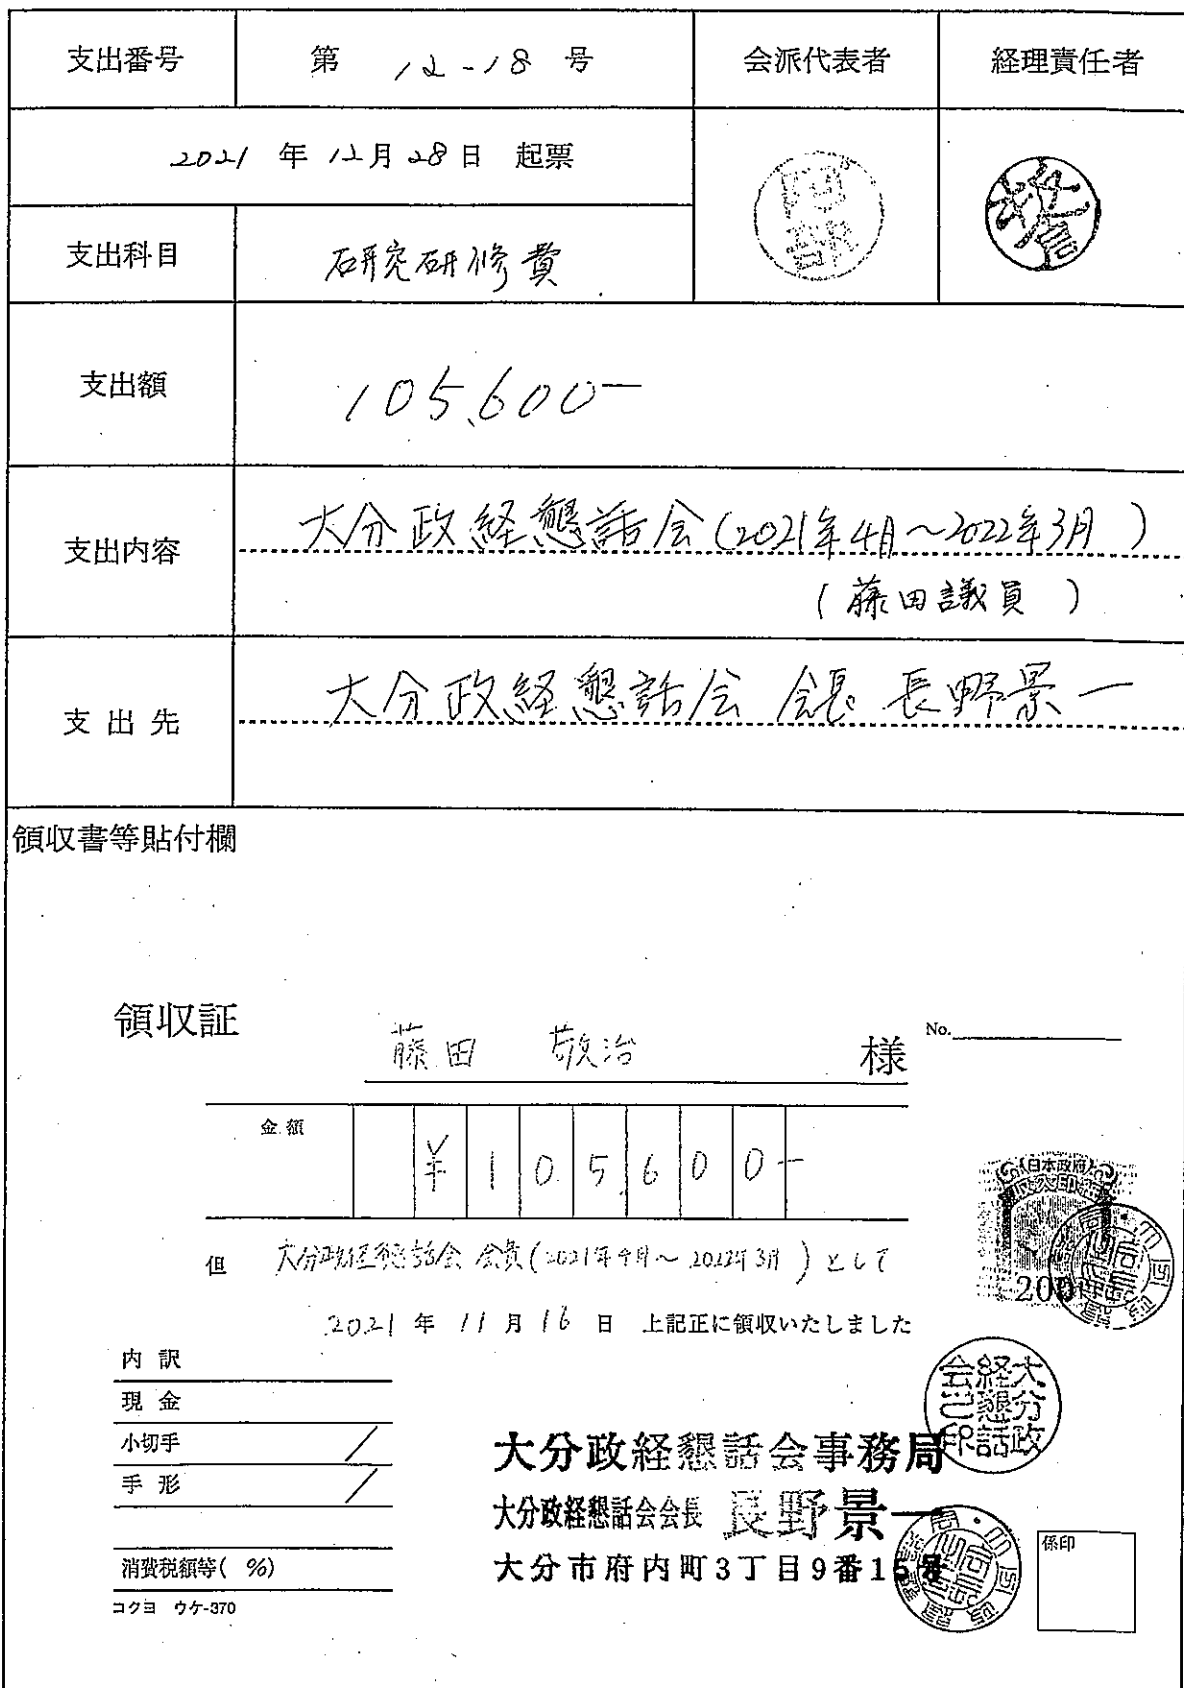 支出番号 第 12-18 号 会派代表者 経理責任者
2021 年 12月 28日 起票
支出科目 研究研修費
支出額 105,600-
支出内容 大分政経懇話会(2021年4月～2022年3月)
(藤田議員)
支出先 大分政経懇話会 会長 長野景一
領収書等貼付欄
領収証 藤田 敬治 様 No.
金額 ¥105,600-
但 大分政経懇話会 会費(2021年4月～2022年3月)として
2021 年 11 月 16 日 上記正に領収いたしました
日本政府
収入印紙
200
内訳
現金
小切手
手形
消費税額等( %)
コクヨ ウケ-370
大分政経懇話会之印
大分政経懇話会事務局
大分政経懇話会会長 長野景一
大分市府内町3丁目9番15号
係印